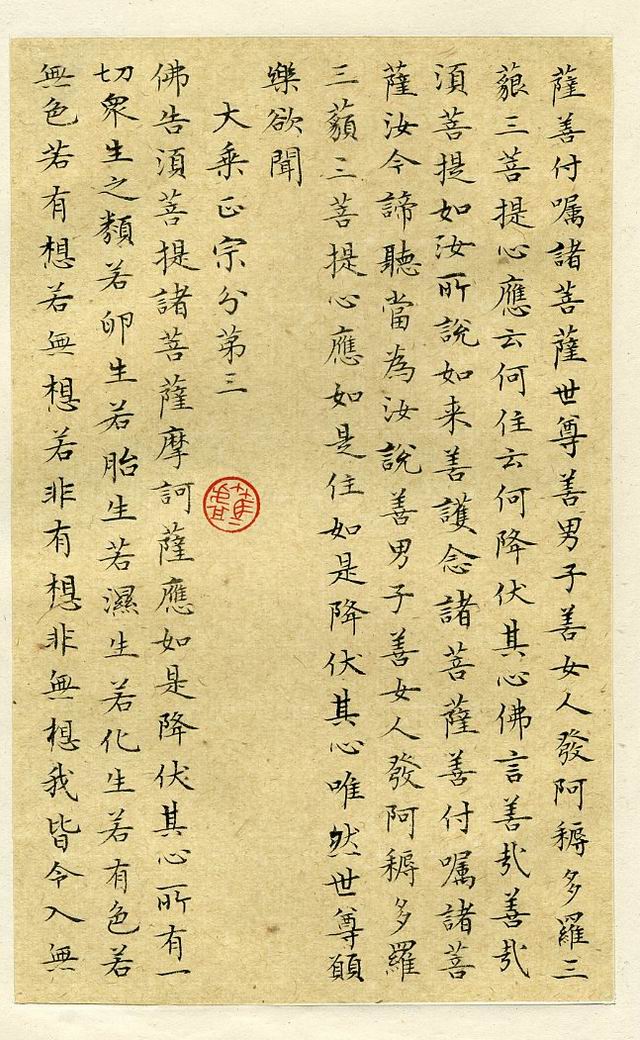 薩善付嘱諸菩薩世尊善男子善女人發阿耨多羅三
藐三菩提心應云何住云何降伏其心佛言善哉善哉
須菩提如汝所說如来善護念諸菩薩善付嘱諸菩
薩汝今諦聽當為汝說善男子善女人發阿耨多羅
三藐三菩提心應如是住如是降伏其心唯然世尊願
樂欲聞
大乘正宗分第三
佛告須菩提諸菩薩摩訶薩應如是降伏其心所有一
切衆生之類若卵生若胎生若濕生若化生若有色若
無色若有想若無想若非有想非無想我皆令入無